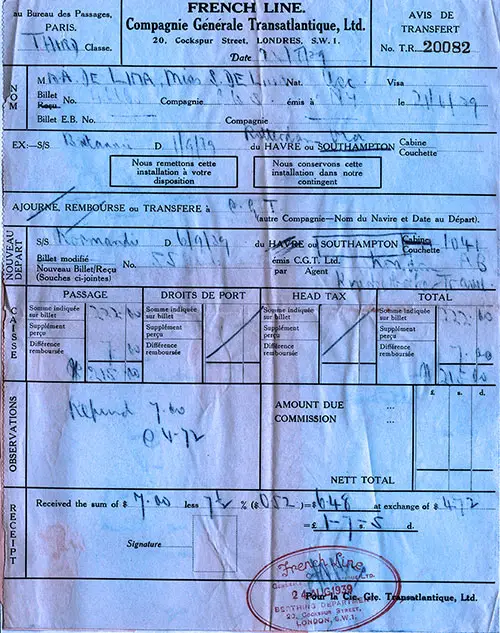 au Bureau des Passages,
PARIS.
THIRD Classe.
FRENCH LINE.
Compagnie Générale Transatlantique, Ltd.
20, Cockspur Street, LONDRES, S.W.1.
Date
AVIS DE
TRANSFERT
No. T.R. 20082
NOM
M DE LIMA, Miss S. DE Nat. Visa
Billet
Reçu No. Compagnie émis à le 21/4/39
Billet E.B. No. Compagnie
EX:—S/S Britannic D 1/9/39 du HAVRE ou SOUTHAMPTON Cabine
Couchette
Nous remettons cette
installation à votre
disposition
Nous conservons cette
installation dans notre
contingent
AJOURNE, REMBOURSE ou TRANSFERE à C.G.T.
(autre Compagnie—Nom du Navire et Date au Départ).
NOUVEAU
DEPART
S/S Normandie D 6/9/39 du HAVRE ou SOUTHAMPTON Cabine
Couchette 1041 B
Billet modifié No. émis C.G.T. Ltd. London
Nouveau Billet/Reçu par Agent
(Souches ci-jointes)
CAISSE
PASSAGE DROITS DE PORT HEAD TAX TOTAL
Somme indiquée sur billet 222.00 Somme indiquée sur billet Somme indiquée sur billet Somme indiquée sur billet 222.00
Supplément perçu Supplément perçu Supplément perçu Supplément perçu
Différence remboursée 7.00 Différence remboursée Différence remboursée Différence remboursée 7.00
215.00 215.00
OBSERVATIONS
Refund 7.00
@ 4.72
£ s. d.
AMOUNT DUE ...
COMMISSION ...
NETT TOTAL
RECEIPT
Received the sum of $ 7.00 less 7½ % ($ 052) = $ 6.48 at exchange of $ 4.72
= £ 1-7-5 d.
Signature
French Line
24 AUG 1939
BERTHING DEPARTMENT
20, COCKSPUR STREET,
LONDON, S.W.1.
Pour la Cie. Gle. Transatlantique, Ltd.